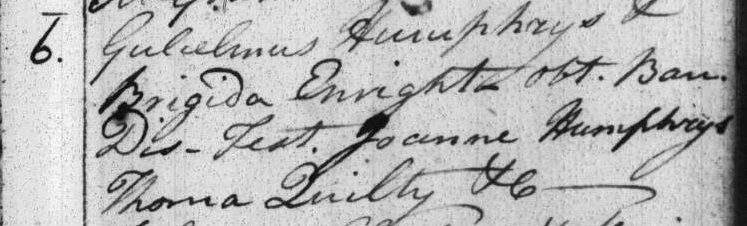 6. Gulielmus Humphrys &
Brigida Enright obt. Ban.
Dis- Test. Joanne Humphrys
Thoma Quilty &c